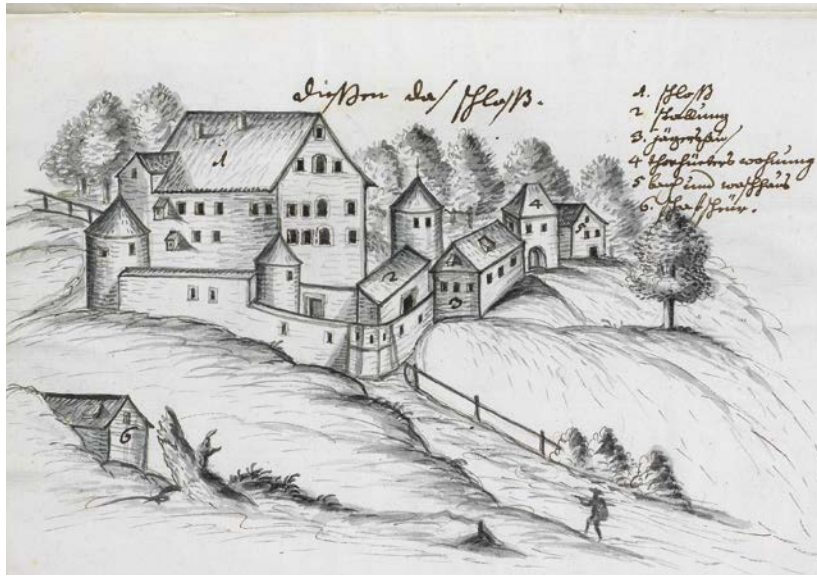 Dießen das schloß.
1. schloß
2 stallung
3. jägershaus
4 thorhüeters wohnung
5 bach und waschhaus
6. schafscheür.
1
2
3
4
5
6